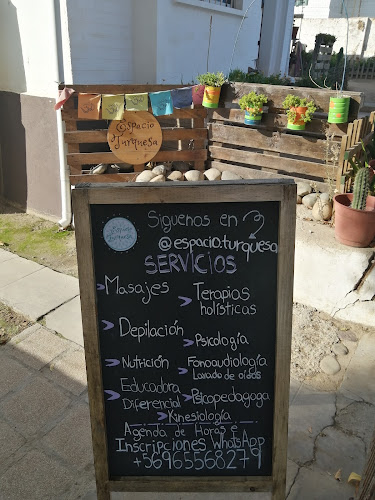 Espacio
Turquesa
Siguenos en
@espacio.turquesa
SERVICIOS
Masajes
Terapias
holísticas
Depilación
Psicología
Nutrición
Fonoaudiología
Lavado de oídos
Educadora
Diferencial
Psicopedagoga
Kinesiología
Agenda de Horas e
Inscripciones WhatsApp
+56965568279